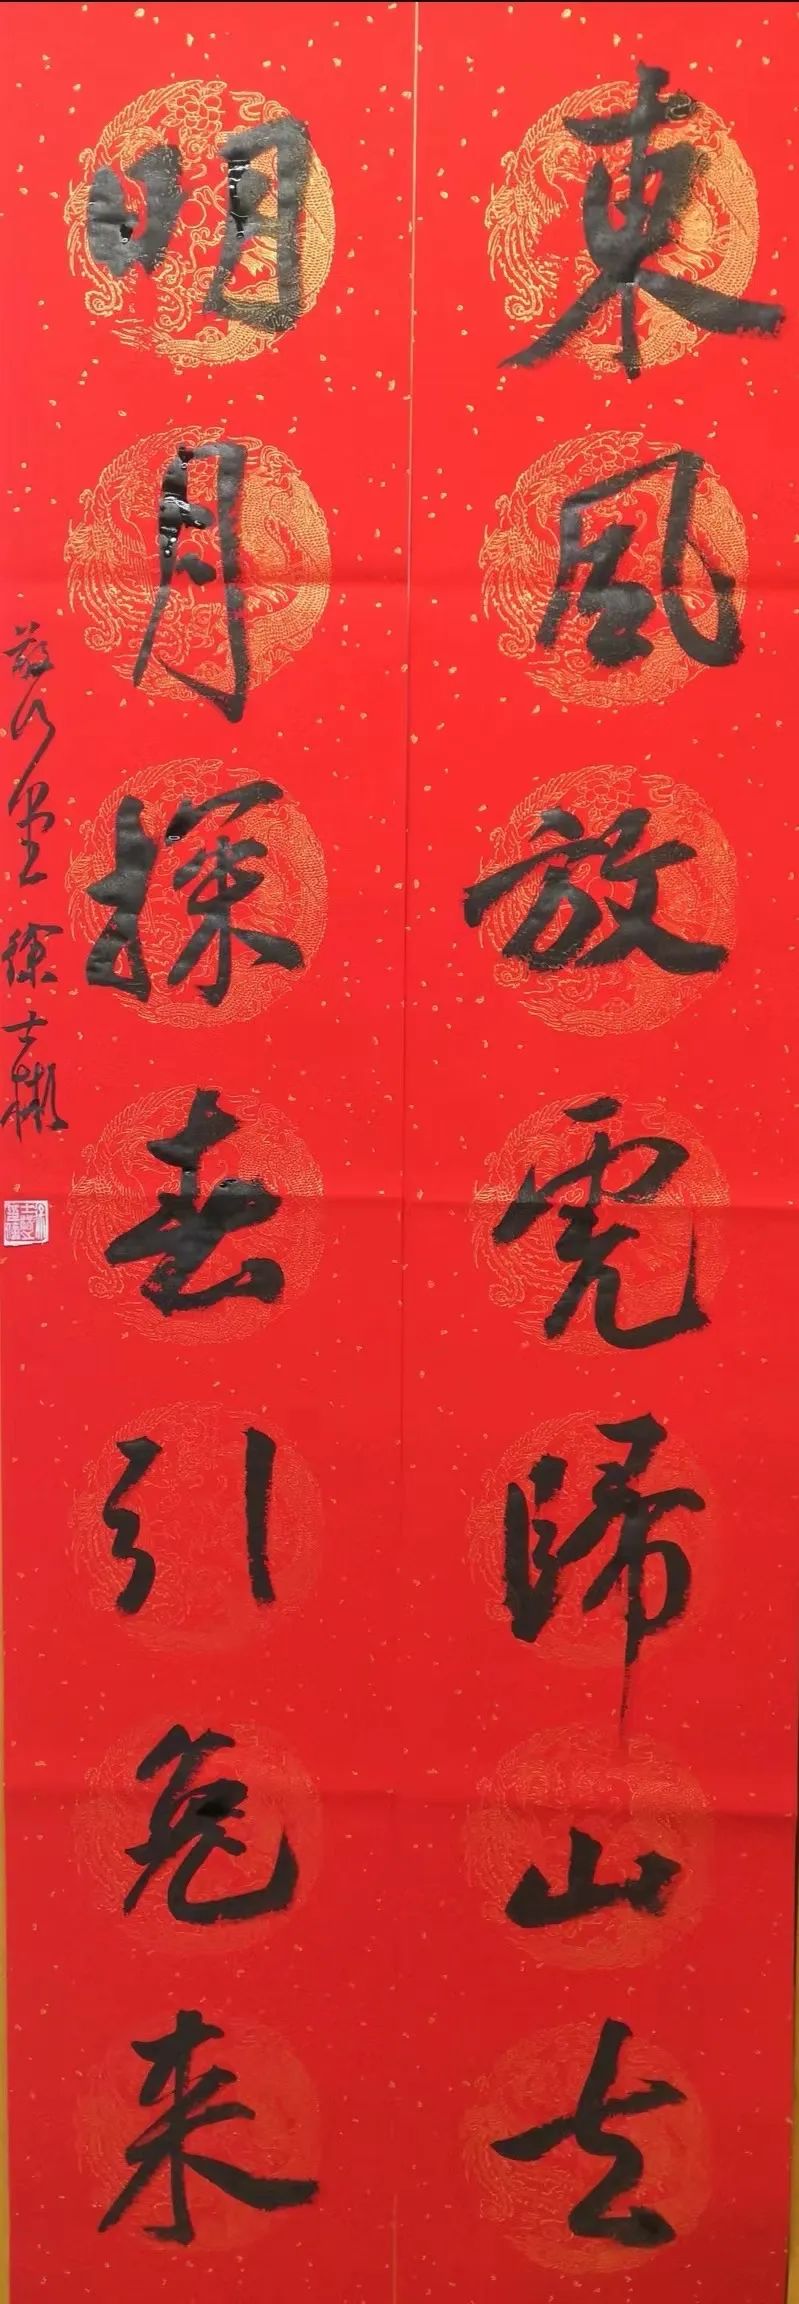 東風放虎歸山去
明月探春引兔来
徐士彬